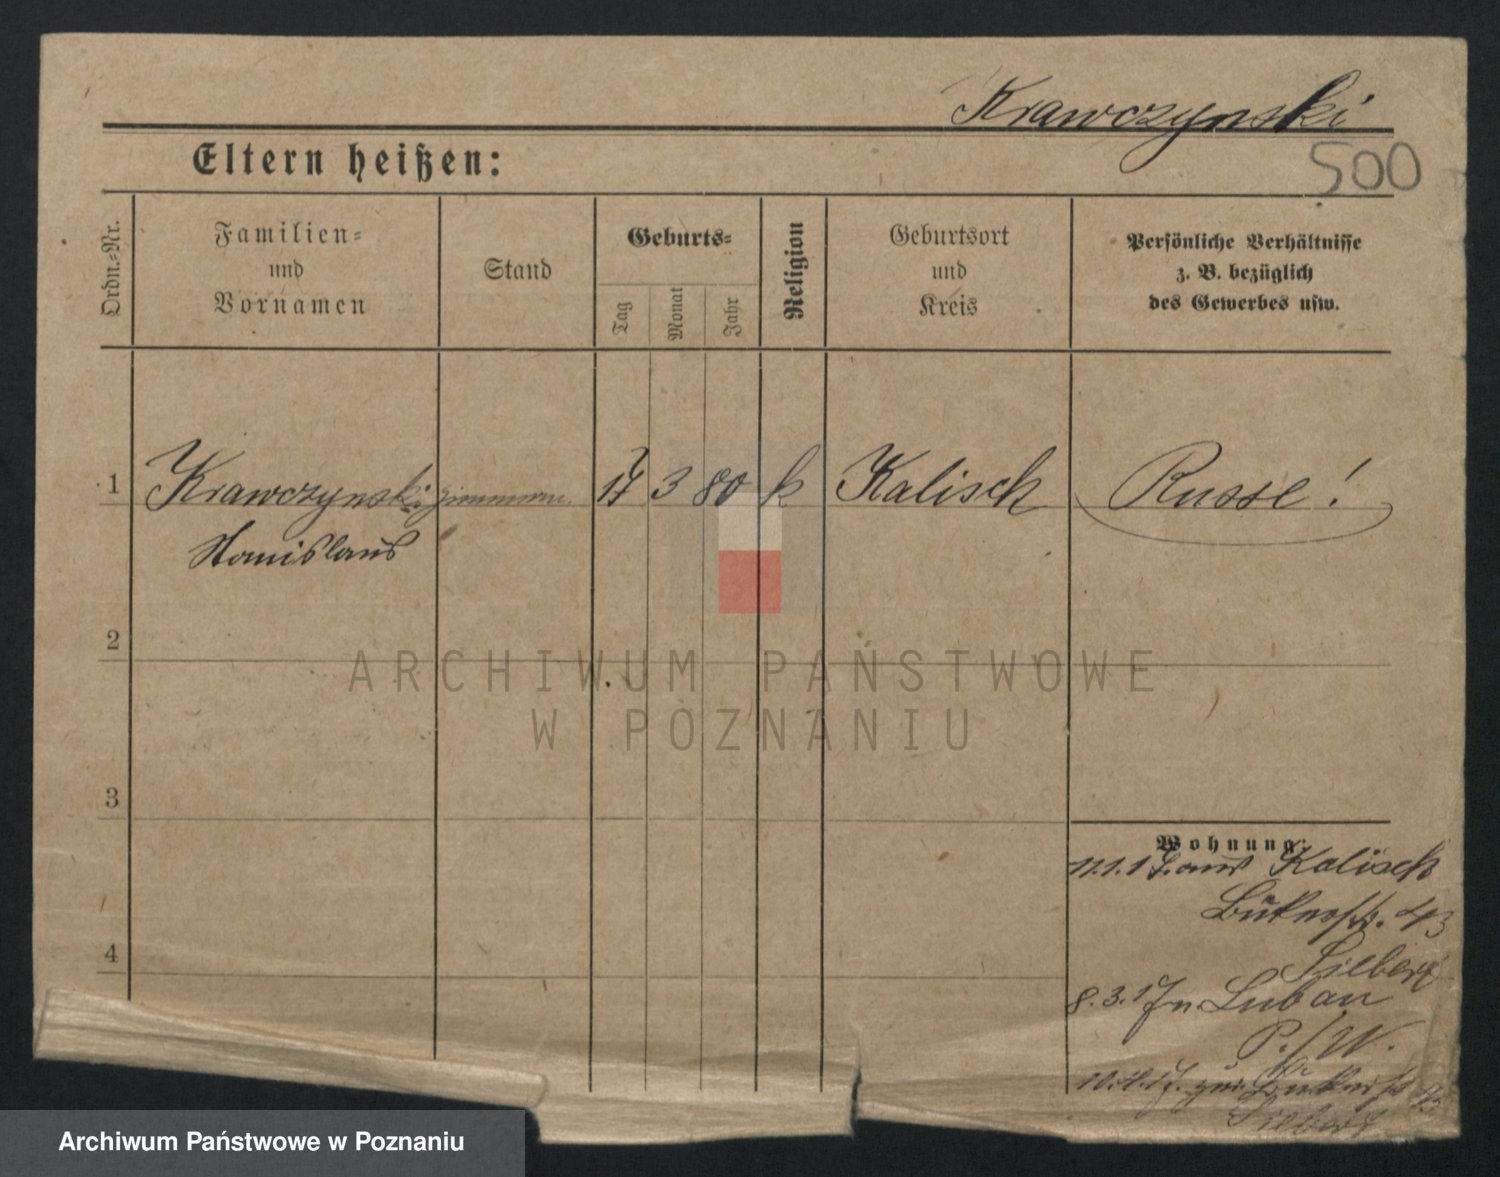 Krawczynski
500
Eltern heißen:
Ordn.-Nr.
Familien-
und
Vornamen
Stand
Geburts-
Tag
Monat
Jahr
Religion
Geburtsort
und
Kreis
Persönliche Verhältnisse
z. B. bezüglich
des Gewerbes usw.
1 Krawczynski 17 3 80 k Kalisch Russe!
Stanislaus
2
ARCHIWUM PAŃSTWOWE
W POZNANIU
3
Wohnung:
11.1.17. aus Kalisch
43
4
8.3.17 n. Luban
P./W.
Archiwum Państwowe w Poznaniu